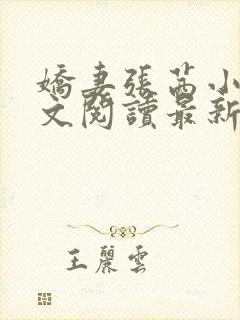 嬌妻張茜小
文閱讀最新
王麗雲